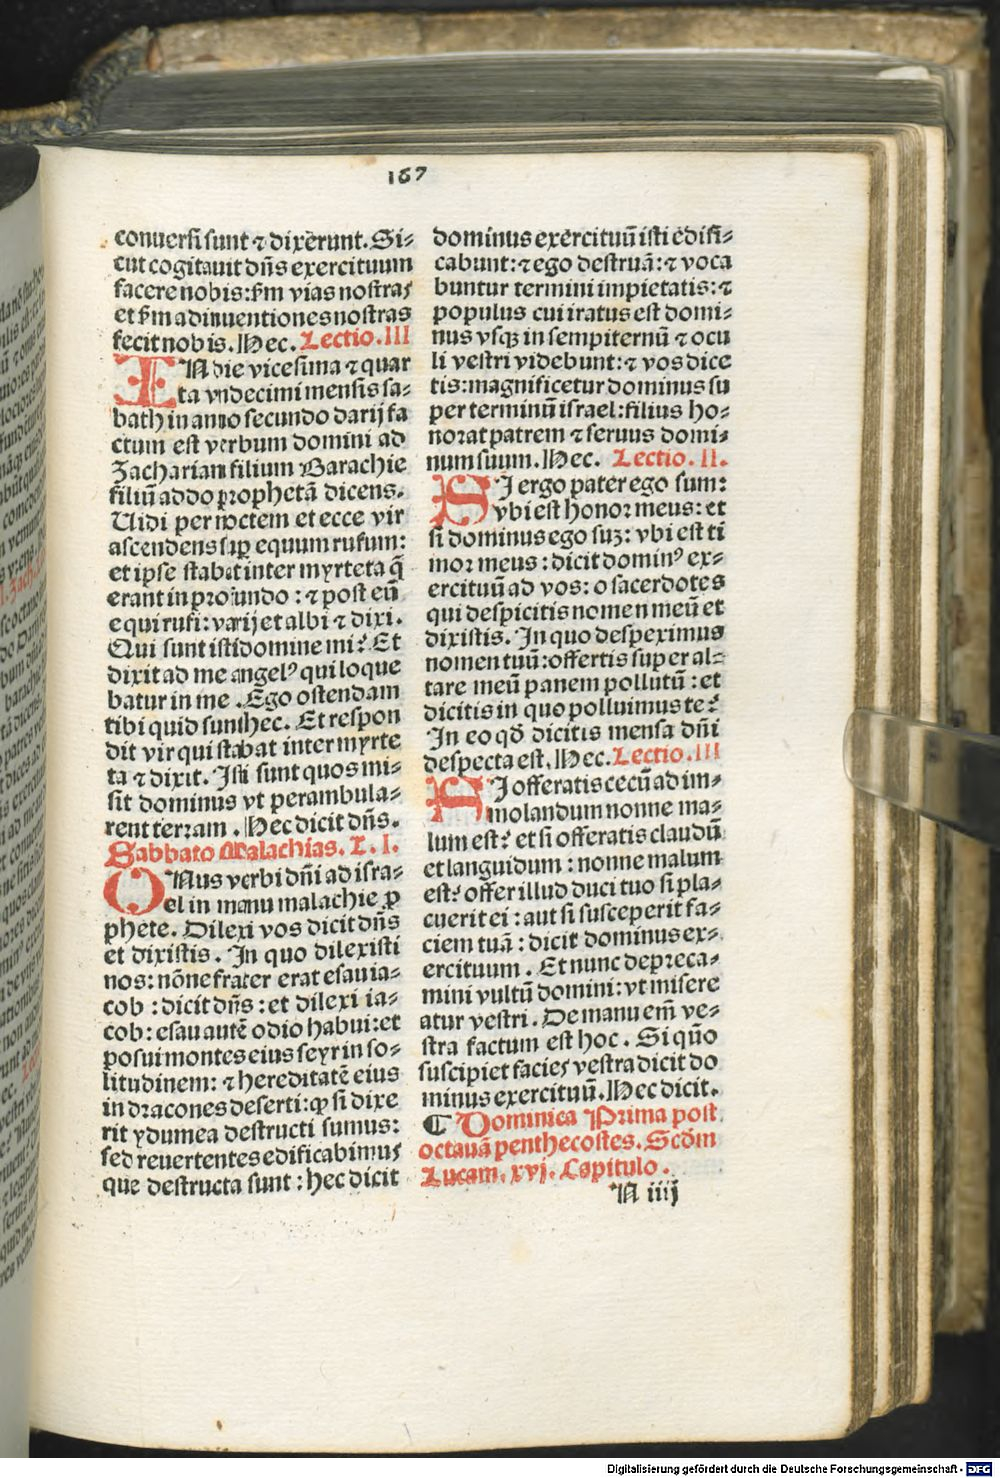 167
conuersi sunt ⁊ dixerunt. Si⸗
cut cogitauit dñs exercituum
facere nobis: ẜm vias nostras
et ẜm adinuentiones nostras
fecit nobis. Hec. Lectio. III
IN die vicesima ⁊ quar
ta vndecimi mensis sa⸗
bath in anno secundo darij fa
ctum est verbum domini ad
Zachariam filium Barachie
filiū addo prophetā dicens.
Uidi per noctem et ecce vir
ascendens suꝑ equum rufum:
et ipse stabat inter myrteta q̄
erant in profundo: ⁊ post eū
equi rufi: varij et albi ⁊ dixi.
Qui sunt isti domine mi? Et
dixit ad me angelꝰ qui loque
batur in me. Ego ostendam
tibi quid sunt hec. Et respon
dit vir qui stabat inter myrte
ta ⁊ dixit. Isti sunt quos mi⸗
sit dominus vt perambula⸗
rent terram. Hec dicit dñs.
Sabbato Malachias. L. I.
ONus verbi dñi ad isra⸗
el in manu malachie ꝓ
phete. Dilexi vos dicit dñs
et dixistis. In quo dilexisti
nos: nōne frater erat esau ia⸗
cob: dicit dñs: et dilexi ia⸗
cob: esau autē odio habui: et
posui montes eius seyr in so⸗
litudinem: ⁊ hereditatē eius
in dracones deserti: ꝙ si dixe
rit ydumea destructi sumus:
sed reuertentes edificabimus
que destructa sunt: hec dicit
dominus exercituū isti edifi⸗
cabunt: ⁊ ego destruā: ⁊ voca
buntur termini impietatis: ⁊
populus cui iratus est domi⸗
nus vsqꝫ in sempiternū ⁊ ocu
li vestri videbunt: ⁊ vos dice
tis: magnificetur dominus su
per terminū israel: filius ho⸗
norat patrem ⁊ seruus domi⸗
num suum. Hec. Lectio. II.
SI ergo pater ego sum:
vbi est honor meus: et
si dominus ego suꝫ: vbi est ti
mor meus: dicit dominꝰ ex⸗
ercituū ad vos: o sacerdotes
qui despicitis nomen meū et
dixistis. In quo despeximus
nomen tuū: offertis super al⸗
tare meū panem pollutū: et
dicitis in quo polluimus te?
In eo qđ dicitis mensa dñi
despecta est. Hec. Lectio. III
SI offeratis cecū ad im⸗
molandum nonne ma⸗
lum est? et si offeratis claudū
et languidum: nonne malum
est? offer illud duci tuo si pla⸗
cuerit ei: aut si susceperit fa⸗
ciem tuā: dicit dominus ex⸗
ercituum. Et nunc depreca⸗
mini vultū domini: vt misere
atur vestri. De manu em̄ ve⸗
stra factum est hoc. Si quo̅
suscipiet facies vestra dicit do
minus exercituū. Hec dicit.
¶ Dominica Prima post
octauā penthecostes. Scđm
Lucam. xvj. Capitulo.
N iiij
Digitalisierung gefördert durch die Deutsche Forschungsgemeinschaft - DFG